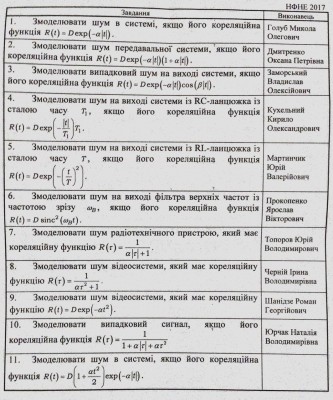 НФНЕ 2017
Завдання
Виконавець
1. Змоделювати шум в системі, якщо його кореляційна
функція R(t) = D exp(−α|t|).
Голуб Микола
Олегович
2. Змоделювати шум передавальної системи, якщо його
кореляційна функція R(t) = D exp(−α|t|)(1 + α|t|).
Дмитренко
Оксана Петрівна
3. Змоделювати випадковий шум на виході системи, якщо
його кореляційна функція R(t) = D exp(−α|t|)cos(β|t|).
Заморський
Владислав
Олексійович
4. Змоделювати шум на виході системи із RC-ланцюжка із
сталою часу T₁, якщо його кореляційна функція
R(t) = D exp(−|t|/T₁)T₁.
Кухельний
Кирило
Олександрович
5. Змоделювати шум на виході системи із RL-ланцюжка із
сталою часу T, якщо його кореляційна функція
R(t) = D exp(−(t/T)²).
Мартинчик
Юрій
Валерійович
6. Змоделювати шум на виході фільтра верхніх частот із
частотою зрізу ω_B, якщо його кореляційна функція
R(t) = D sinc²(ω_B t).
Прокопенко
Ярослав
Вікторович
7. Змоделювати шум радіотехнічного пристрою, який має
кореляційну функцію R(τ) = 1/(α|τ|+1).
Топоров Юрій
Володимирович
8. Змоделювати шум відеосистеми, який має кореляційну
функцію R(τ) = 1/(ατ²+1).
Черній Ірина
Володимирівна
9. Змоделювати шум відеосистеми, який має кореляційну
функцію R(t) = D exp(−αt²).
Шанідзе Роман
Георгійович
10. Змоделювати випадковий сигнал, якщо його
кореляційна функція R(τ) = 1/(1+α|τ|+ατ²)
Юрчак Наталія
Володимирівна
11. Змоделювати шум в системі, якщо його кореляційна
функція R(t) = D(1 + αt²/2)exp(−α|t|).